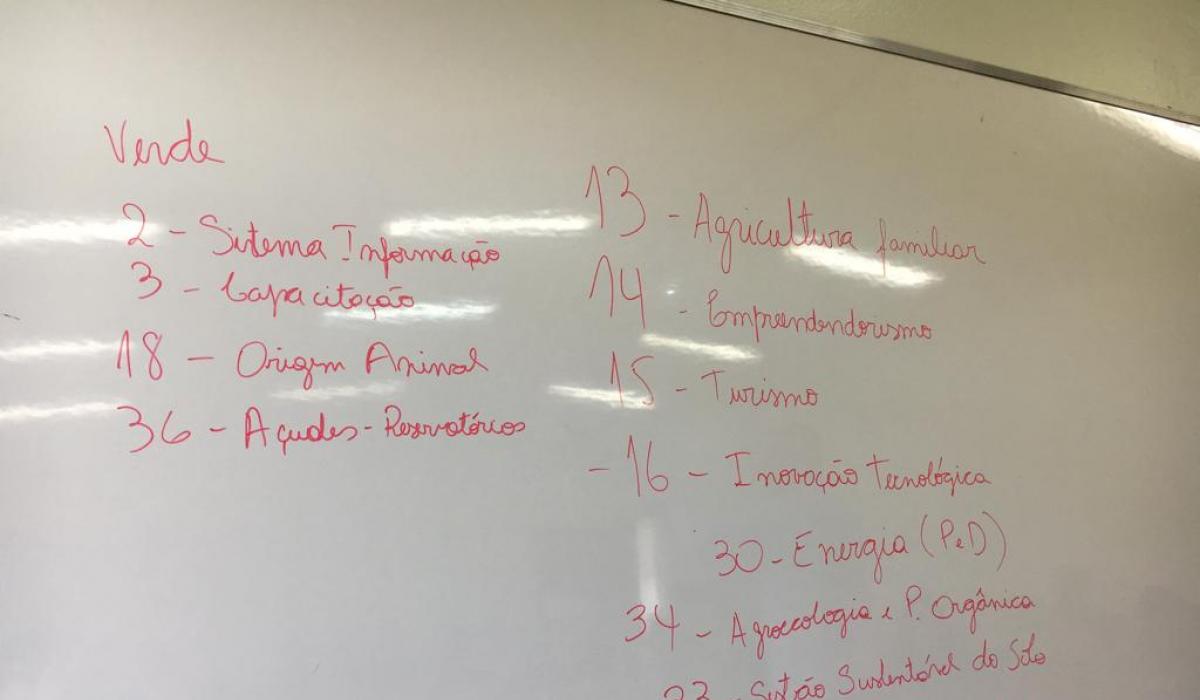 Verde
2 - Sistema Informação
3 - Capacitação
18 - Origem Animal
36 - Açudes - Reservatórios
13 - Agricultura familiar
14 - Empreendendorismo
15 - Turismo
- 16 - Inovação Tecnológica
30 - Energia (PeD)
34 - Agroecologia e P. Orgânica
Sustentável do Solo